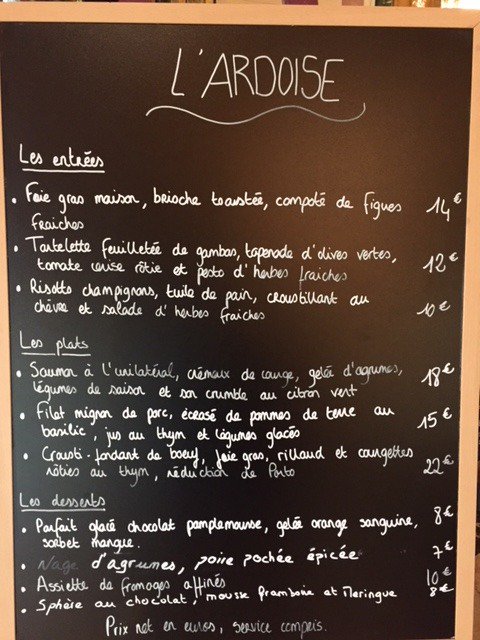 L'ARDOISE
Les entrées
• Foie gras maison, brioche toastée, compoté de figues 14€
fraiches
• Tartelette feuilletée de gambas, tapenade d'olives vertes, 12€
tomate cerise rôtie et pesto d'herbes fraiches
• Risotto champignons, tuile de pain, croustillant au 10€
chèvre et salade d'herbes fraiches
Les plats
• Saumon à l'unilatéral, crémeux de courge, gelée d'agrumes, 18€
légumes de saison et son crumble au citron vert
• Filet mignon de porc, écrasé de pommes de terre au 15€
basilic, jus au thym et légumes glacés
• Crousti-fondant de boeuf, foie gras, rillaud et courgettes 22€
rôties au thym, réduction de Porto
Les desserts
• Parfait glacé chocolat pamplemousse, gelée orange sanguine, 8€
sorbet mangue.
• Nage d'agrumes, poire pochée épicée 7€
• Assiette de fromages affinés 10€
• Sphère au chocolat, mousse framboise et meringue 8€
Prix net en euros, service compris.